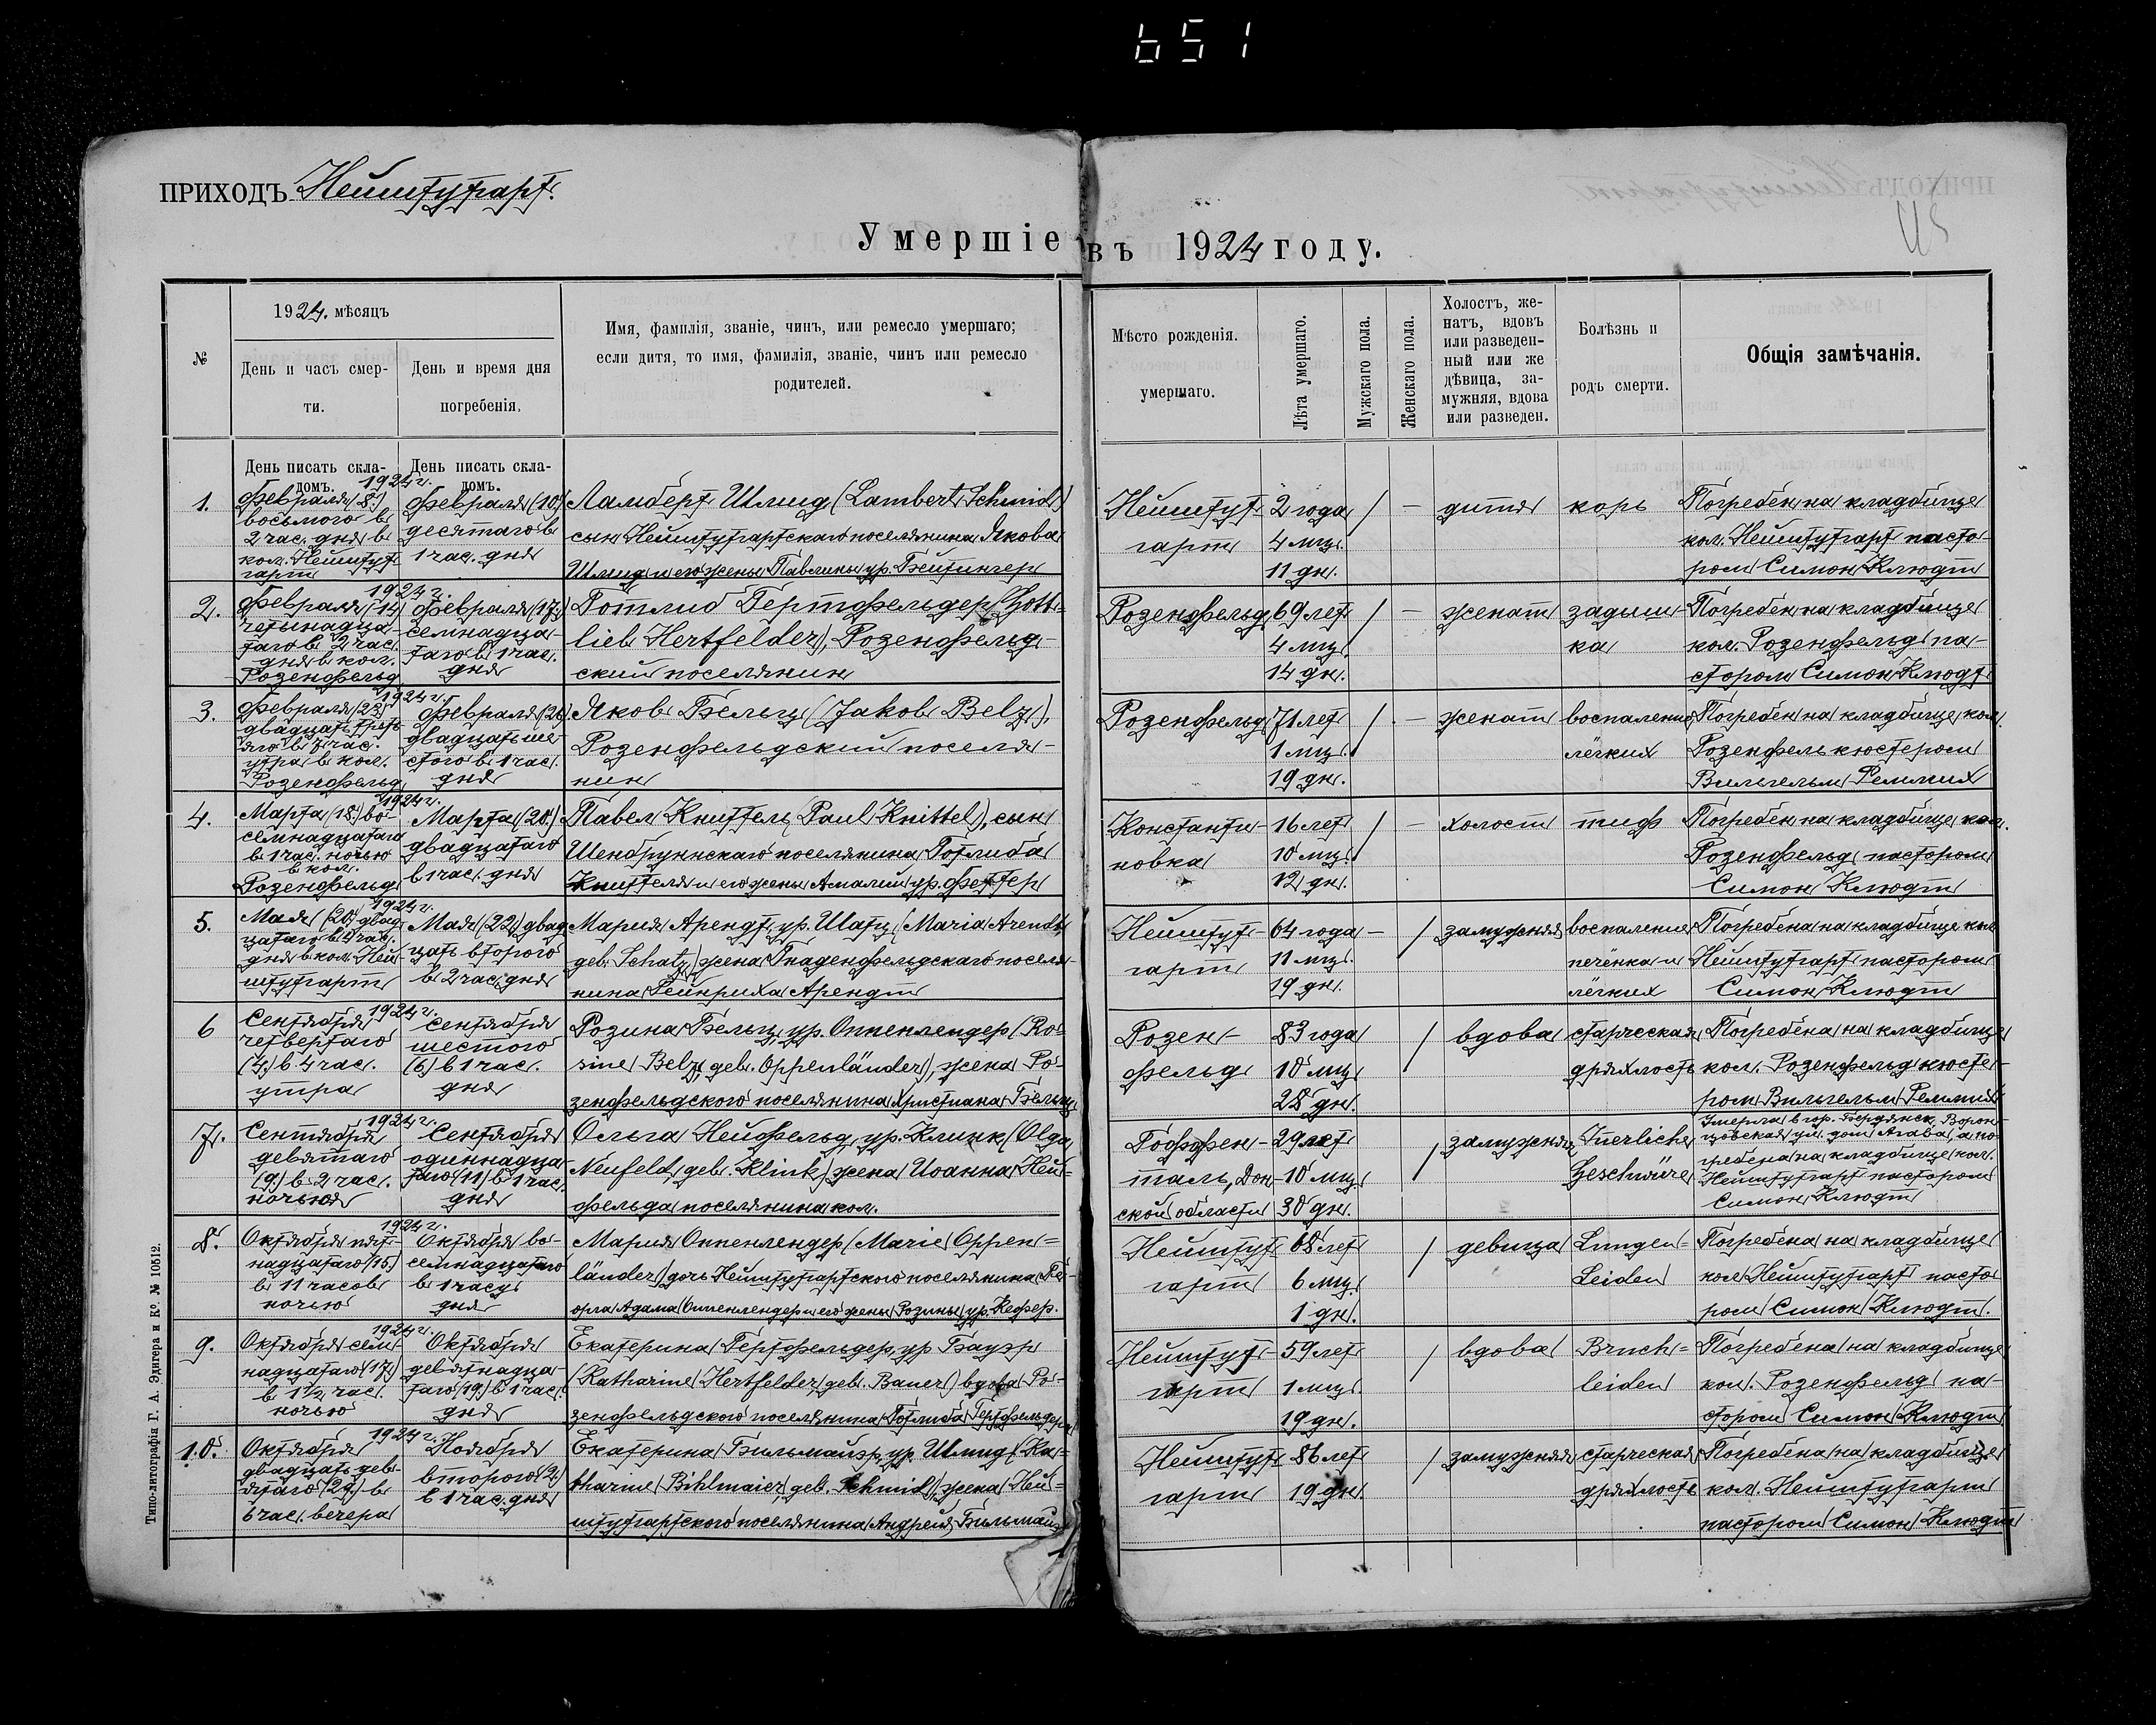 651
ПРИХОДЪ Нейштутгарт.
45
Умершіе въ 1924 году.
№
1924. мѣсяцъ
День и часъ смер-
ти.
День и время дня
погребенія.
Имя, фамилія, званіе, чинъ, или ремесло умершаго;
если дитя, то имя, фамилія, званіе, чинъ или ремесло
родителей.
Мѣсто рожденія.
умершаго.
Лѣта умершаго.
Мужскаго пола.
Женскаго пола.
Холостъ, же-
натъ, вдовъ
или разведен-
ный или же
дѣвица, за-
мужняя, вдова
или разведен.
Болѣзнь и
родъ смерти.
Общія замѣчанія.
День писать скла-
домъ.
День писать скла-
домъ.
1.
1924 г.
Февраля (8.)
восьмого в
2 час. дня в
кол. Нейштут
гарт
Февраля (10.)
десятаго в
1 час. дня
Ламберт Шмид (Lambert Schmid)
сын Нейштутгартскаго поселянина Якова
Шмид и его жены Павлины ур. Бейтингер
Нейштут
гарт
2 года
4 мц.
11 дн.
/
—
дитя
корь
Погребен на кладбище
кол. Нейштутгарт пасто-
ром Симон Клюдт
2.
1924 г.
Февраля (14)
четырнадца-
таго в 2 час.
дня в кол.
Розенфельд
Февраля (17.)
семнадца-
таго в 1 час.
дня
Готлиб Гертфельдер (Gott=
lieb Hertfelder), Розенфельд-
ский поселянин
Розенфельд
69 лет
4 мц.
14 дн.
/
—
женат
задыш-
ка
Погребен на кладбище
кол. Розенфельд па-
стором Симон Клюдт
3.
1924 г.
Февраля (23)
двадцать треть
яго в 7 час.
утра в кол.
Розенфельд
Февраля (26.)
двадцать ше-
стого в 1 час.
дня
Яков Бельц (Jakob Belz),
Розенфельдский поселя-
нин
Розенфельд
71 лет
1 мц.
19 дн.
/
—
женат
воспаление
лёгких
Погребен на кладбище кол.
Розенфель кюстером
Вильгельм Реммих
4.
1924 г.
Марта (18.) во-
семнадцатаго
в 1 час. ночью
в кол.
Розенфельд
Марта (20.)
двадцатаго
в 1 час. дня
Павел Книттель (Paul Knittel), сын
Шенбруннскаго поселянина Готлиба
Книттеля и его жены Амалии ур. Феттер
Константи-
новка
16 лет
10 мц.
12 дн.
/
—
холост
тиф
Погребен на кладбище кол.
Розенфельд пастором
Симон Клюдт
5.
1924 г.
Мая (20.) двад-
цатаго в 4 час.
дня в кол. Ней-
штутгарт
Мая (22.) двад
цать второго
в 2 час. дня
Мария Арендт, ур. Шатц (Maria Arendt,
geb. Schatz) жена Гнаденфельдскаго поселя-
нина Гейнриха Арендт
Нейштут-
гарт
64 года
11 мц.
19 дн.
—
/
замужняя
воспаление
печёнка и
лёгких
Погребена на кладбище кол
Нейштутгарт пастором
Симон Клюдт
6
1924 г.
Сентября
четвертаго
(4.) в 4 час.
утра
Сентября
шестого
(6.) в 1 час.
дня
Розина Бельц, ур. Оппенлендер (Ro=
sine Belz, geb. Oppenländer), жена Ро-
зенфельдского поселянина Христиана Бельц
Розен-
фельд
83 года
10 мц.
28 дн.
/
вдова
старческая
дряхлость
Погребена на кладбище
кол. Розенфельд кюсте-
ром Вильгельм Реммих
7.
1924 г.
Сентября
девятаго
(9.) в 2 час.
ночью
Сентября
одиннадца-
таго (11) в 1 час.
дня
Ольга Нейфельд, ур. Клинк (Olga
Neufeld, geb. Klink) жена Иоанна Ней-
фельда поселянина кол.
Гоффен-
таль, Дон-
ской области
29 лет
10 мц.
30 дн.
/
замужняя
Innerliche
Geschwüre
Умерла в гор. Бердянск, Ворон-
цовская ул. дом Агава, а по-
гребена на кладбище кол.
Нейштутгарт пастором
Симон Клюдт
8.
1924 г.
Октября пят-
надцатаго (15.)
в 11 часов
ночью
Октября во-
семнадцатаго
в 1 часу
дня
Мария Оппенлендер (Marie Oppen=
länder) дочь Нейштутгартского поселянина Ге-
орга Адама Оппенлендер и его жены Розины ур. Кефер.
Нейштут
гарт
68 лет
6 мц.
1 дн.
/
девица
Lungen=
Leiden
Погребена на кладбище
кол Нейштутгарт пасто
ром Симон Клюдт.
9.
1924 г.
Октября сем-
надцатаго (17.)
в 1½ час.
ночью
Октября
девятнадца-
таго (19.) в 1 час.
дня
Екатерина Гертфельдер, ур Бауэр
(Katharine Hertfelder, geb. Bauer) вдова Ро-
зенфельдского поселянина Готлиба Гертфельдера
Нейштут-
гарт
59 лет
1 мц.
19 дн.
/
вдова
Bruch=
leiden
Погребена на кладбище
кол. Розенфельд па-
стором Симон Клюдт
10.
1924 г.
Октября
двадцать дев-
ятаго (29.) в
6 час. вечера
Ноября
второго (2.)
в 1 час. дня
Екатерина Бильмайэр, ур. Шмид (Ka=
tharine Bihlmaier, geb. Schmid) жена Ней=
штутгартского поселянина Андрея Бильмайэр
Нейштут
гарт
86 лет
19 дн.
/
замужняя
старческая
дряхлость
Погребена на кладбище
кол. Нейштутгарт
пастором Симон Клюдт
Типо-литографія Г. А. Эдигера и Ко. № 10512.